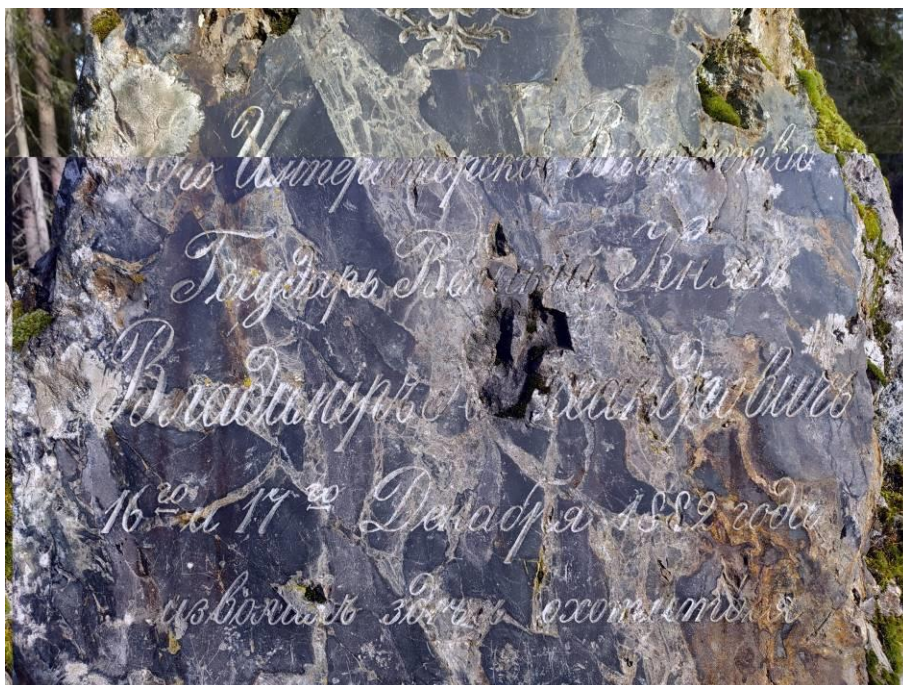 Его Императорское Высочество
Государь Великій Князь
Владиміръ Александровичъ
16го и 17го Декабря 1882 года
изволилъ здѣсь охотиться